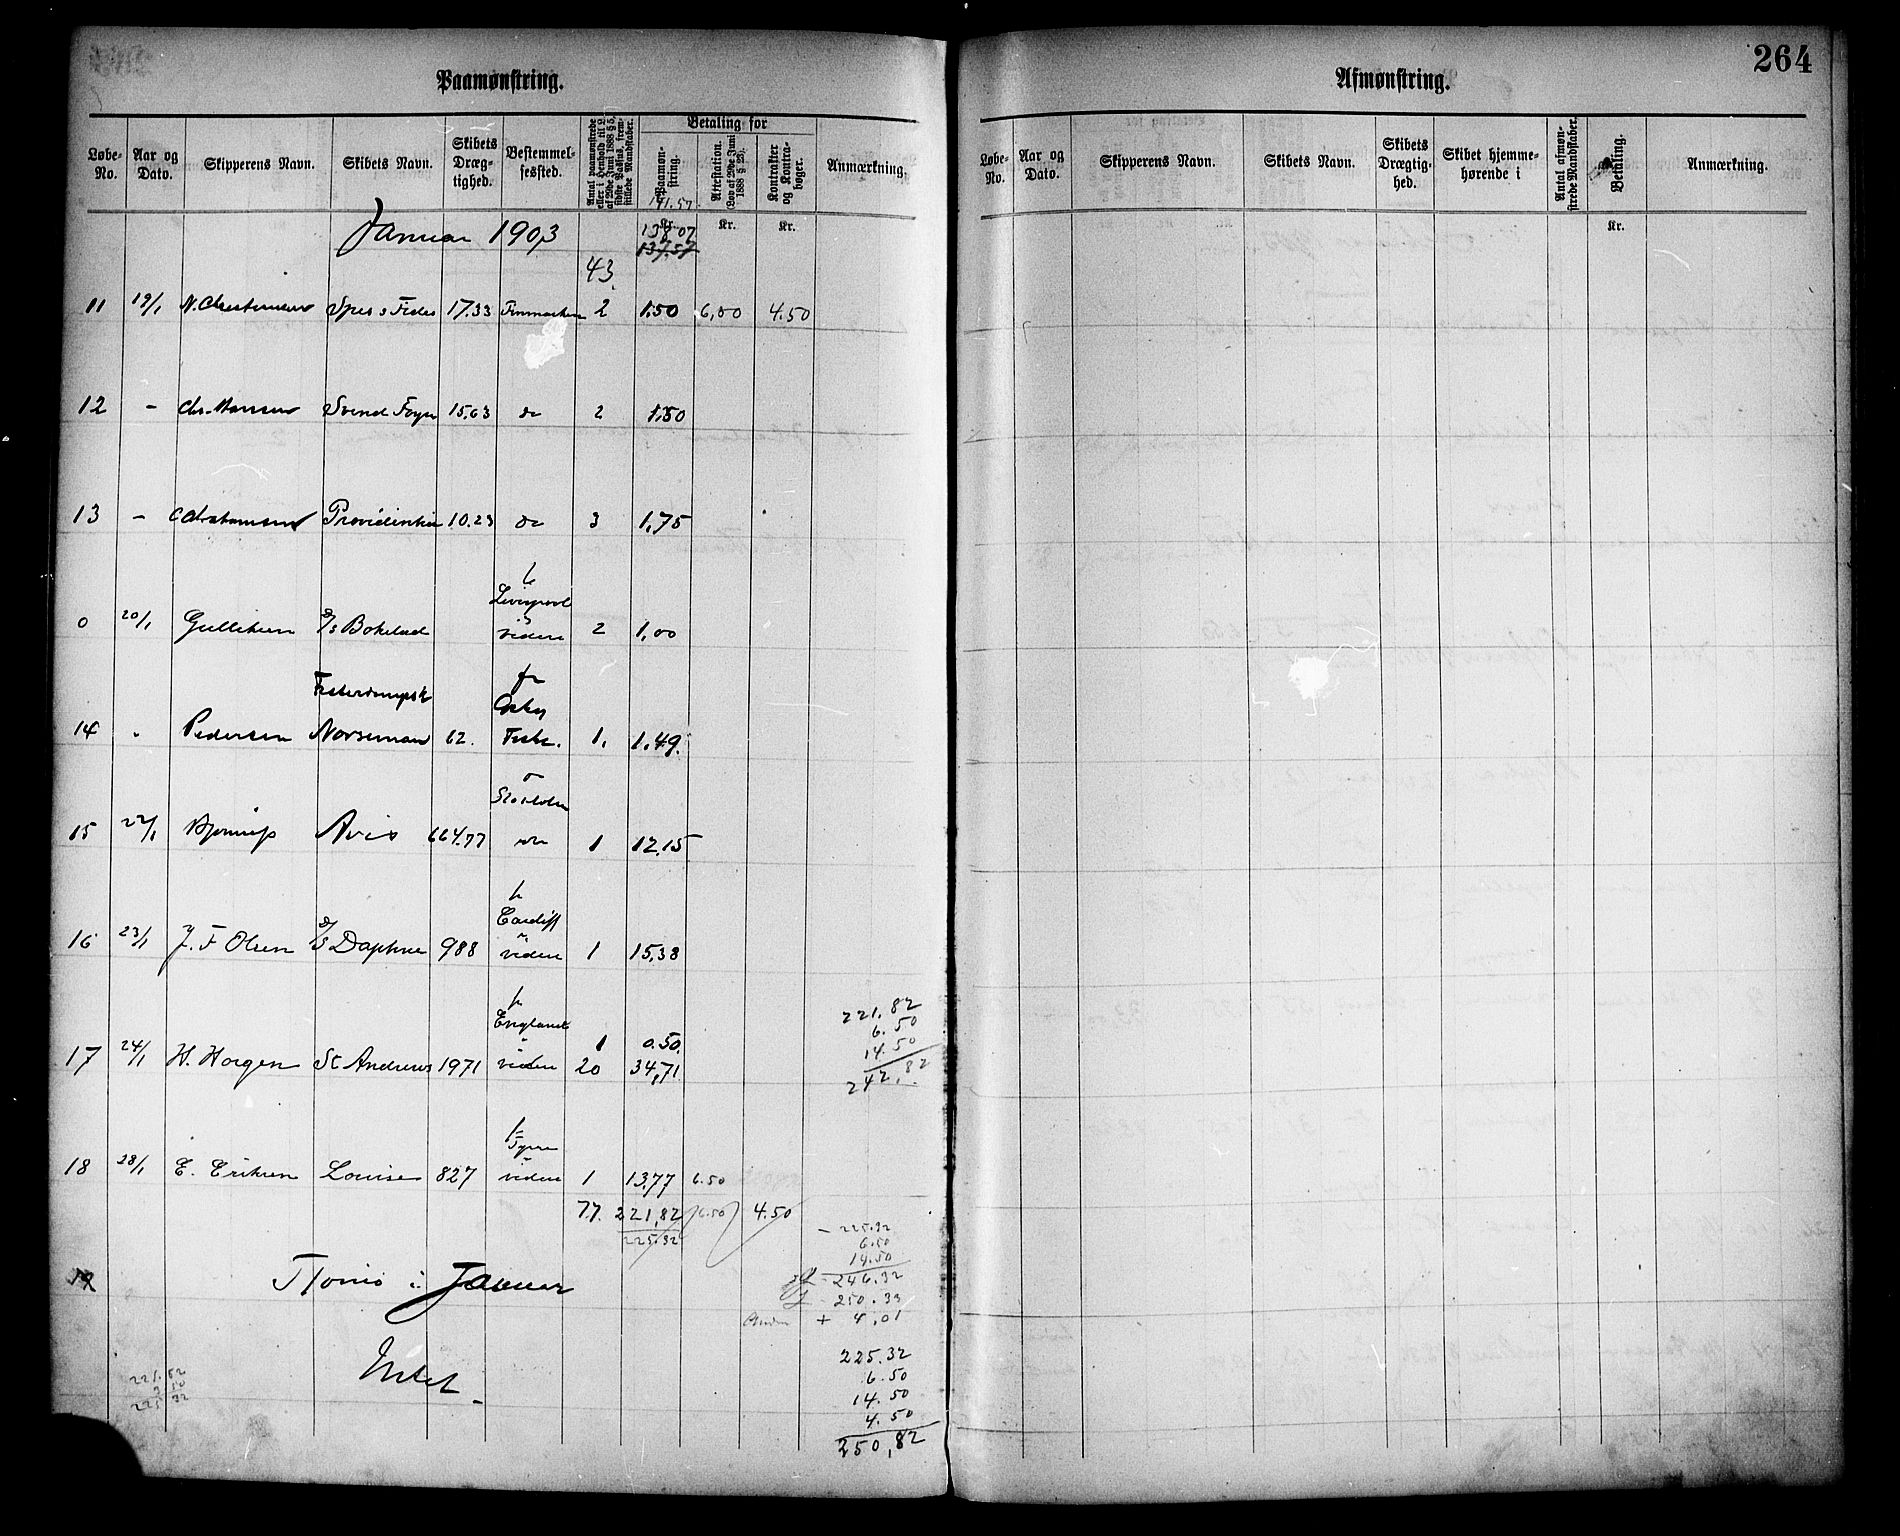 Paamønstring.
Løbe-No.
Aar og Dato.
Skipperens Navn.
Skibets Navn.
Skibets Dræg-tighed.
Bestemmel-sessted.
Antal paamønstrede eller i Henhold til 2. af 29de Juni 1888 § 5, sidste Passus, frem-stillede Mandskaber.
Betaling for
Paamøn-string.
Attestation. (Lov af 29de Juni 1888 § 28).
Kontrakter og Kontra-bøger.
Anmærkning.
141.57
Kr. Kr.
Januar 1903
138 07
137.57
43.
11 19/1 N. Christensen Spes & Fides 17.33 Finmarken 2 1.50 6,00 4.50
12 - Chr. Hansen Svend Foyn 15,63 do 2 1.50
13 - C Abrahamsen Providentia 10.23 do 3 1,75
Liverpool
0 20/1 Gullichsen D/S Bokelad videre 2 1,00
Fiskerdampsk
14 Pedersen Norseman 62. Fiske. 1, 1,49.
15 22/1 Avis 664.77 1 12,15
Cardiff
16 23/1 J. F Olsen D/S Daphne 988 videre 1 15,38
England
1 0.50.
17 24/1 H. Horgen St Andrews 1971 videre 20 34,71
221,82
6.50
14.50
242,82
Tyne
18 28/1 E. Eriksen Louise 827 videre 1 13,77 6.50
77. 221,82 6.50 4.50
225.32
- 225.32
6.50
14.50
246.32
250.33
+ 4,01
19 i Januar
Intet
225.32
6.50
14.50
4.50
250,82
221.82
3 50
225 32
264
Afmønstring.
Løbe-No.
Aar og Dato.
Skipperens Navn.
Skibets Navn.
Skibets Drægtig-hed.
Skibet hjemme-hørende i
Antal afmøn-strede Mandskaber.
Betaling.
Anmærkning.
Kr.